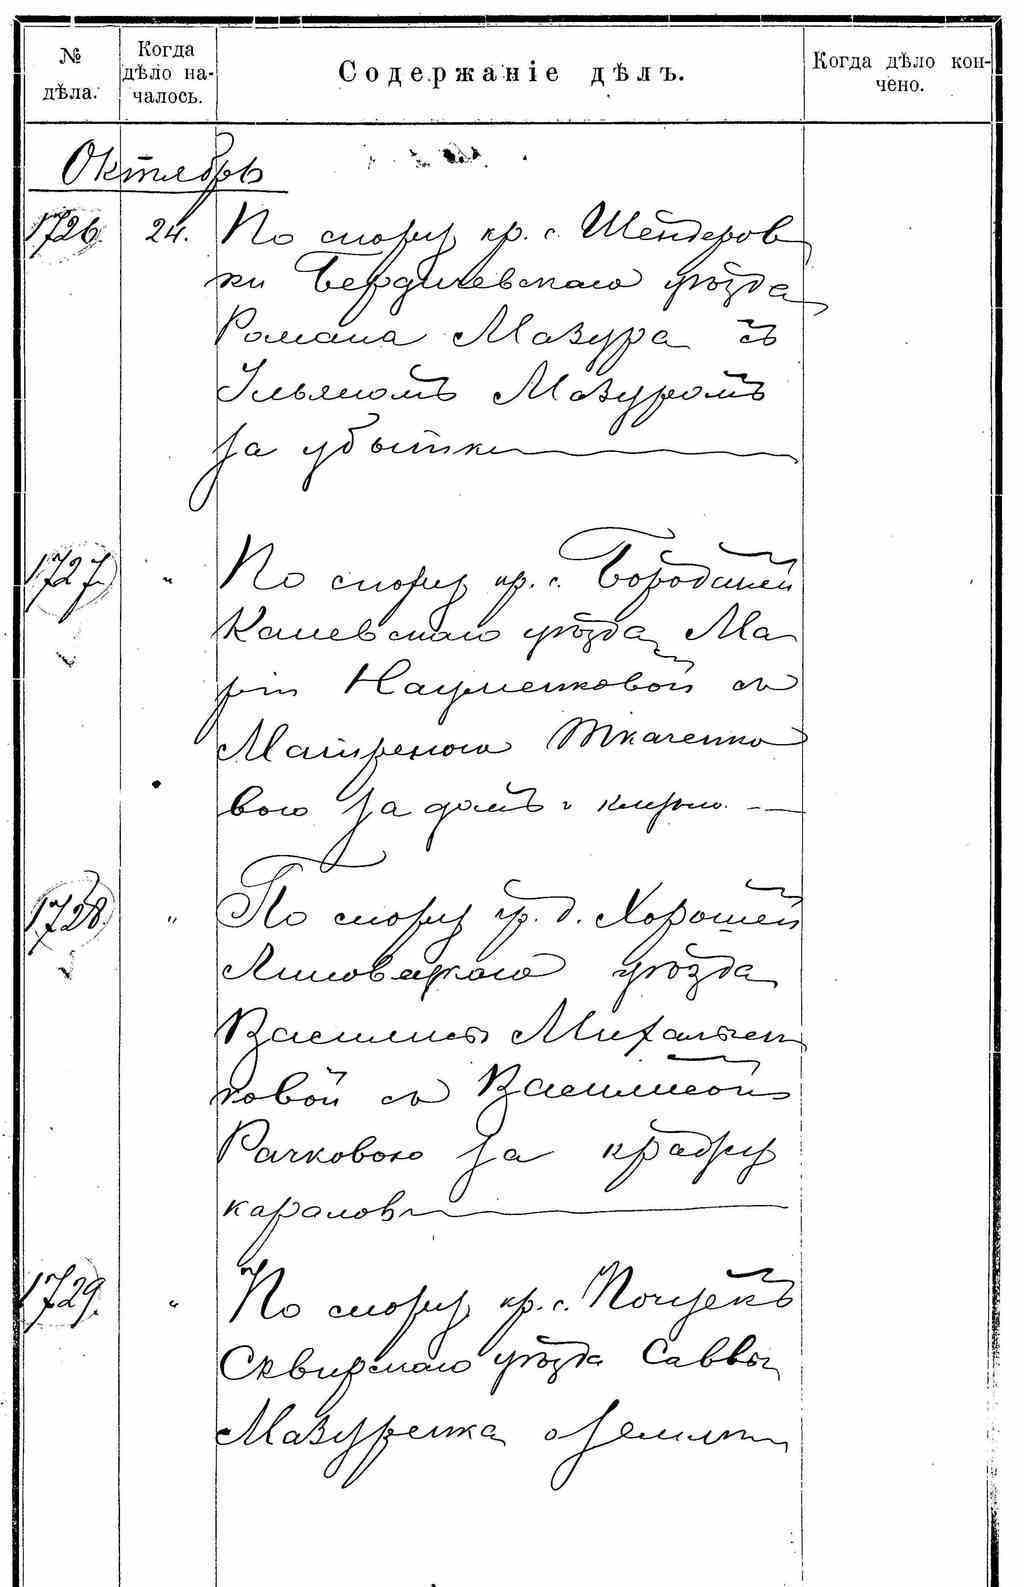 № дѣла.
Когда дѣло на-
чалось.
Содержаніе дѣлъ.
Когда дѣло кон-
чено.
Октябрь
1726. 24. По спору кр. с. Шендеров
ки Бердичевскаго уѣзда
Романа Мазура съ
Ильяномъ Мазуромъ
за убытки
1727. " По спору кр. с. Бородиней
Каневскаго уѣзда Ма
ріи Науменковой съ
Матреною Ткаченко
вою за домъ и клуню.
1728. " По спору кр. д. Хорошей
Липовецкаго уѣзда
Василисы Михальчен
ковой съ Василисой
Рачковою за кражу
каралов
1729. " По спору кр. с. Почуекъ
Сквирскаго уѣзда Саввы
Мазуренка о землѣ